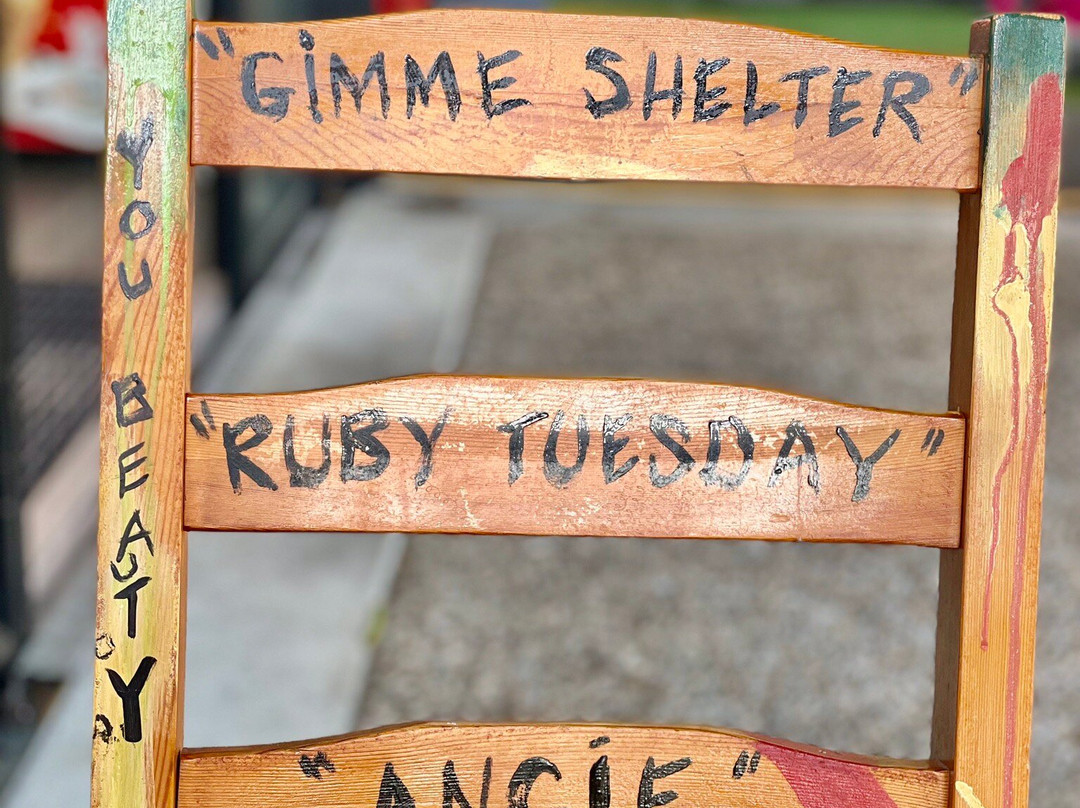 "GiMME SHELTER"
"RUBY TUESDAY"
"ANGiE"
YOU BEAUTY